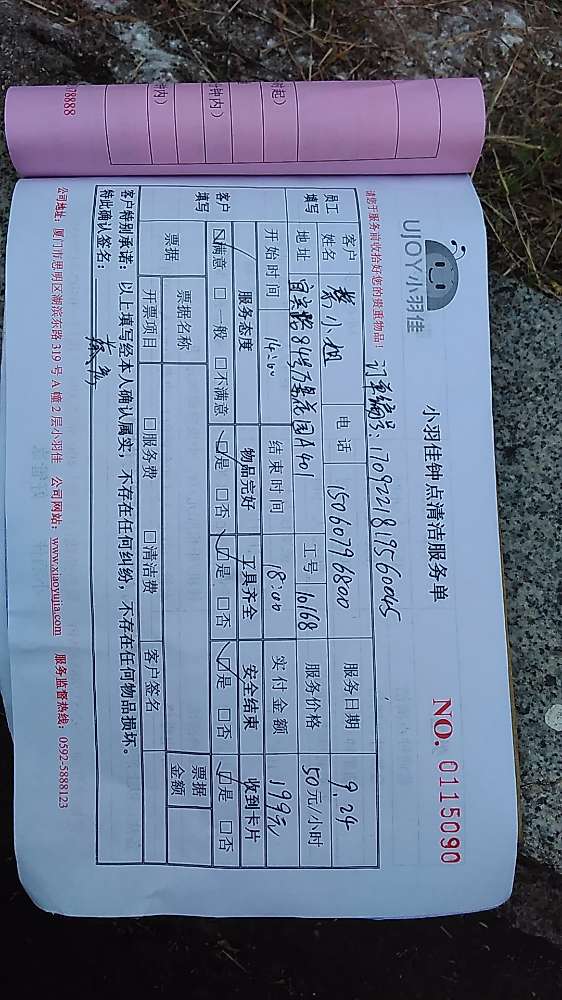 UJOY小羽佳
小羽佳钟点清洁服务单
NO. 0115090
请您于服务前收拾好您的贵重物品!
订单编号: 170922181956045
员工填写 客户姓名 小姐 电话 15060796800 服务日期 9.24
地址 84号 花园A401 工号 10168 服务价格 50元/小时
开始时间 14:00 结束时间 18:00 实付金额 199元
客户填写 服务态度 物品完好 工具齐全 安全结束 收到卡片
☑满意 □一般 □不满意 ☑是 □否 ☑是 □否 ☑是 □否 ☑是 □否
票据 票据名称 票据金额
开票项目 □服务费 □清洁费 客户签名
客户特别承诺: 以上填写经本人确认属实, 不存在任何纠纷, 不存在任何物品损坏。
特此确认签名:
公司地址: 厦门市思明区湖滨东路319号A幢2层小羽佳 公司网站: www.xiaoyujia.com 服务监督热线: 0592-5888123
时起)
钟内)
钟内)
78888